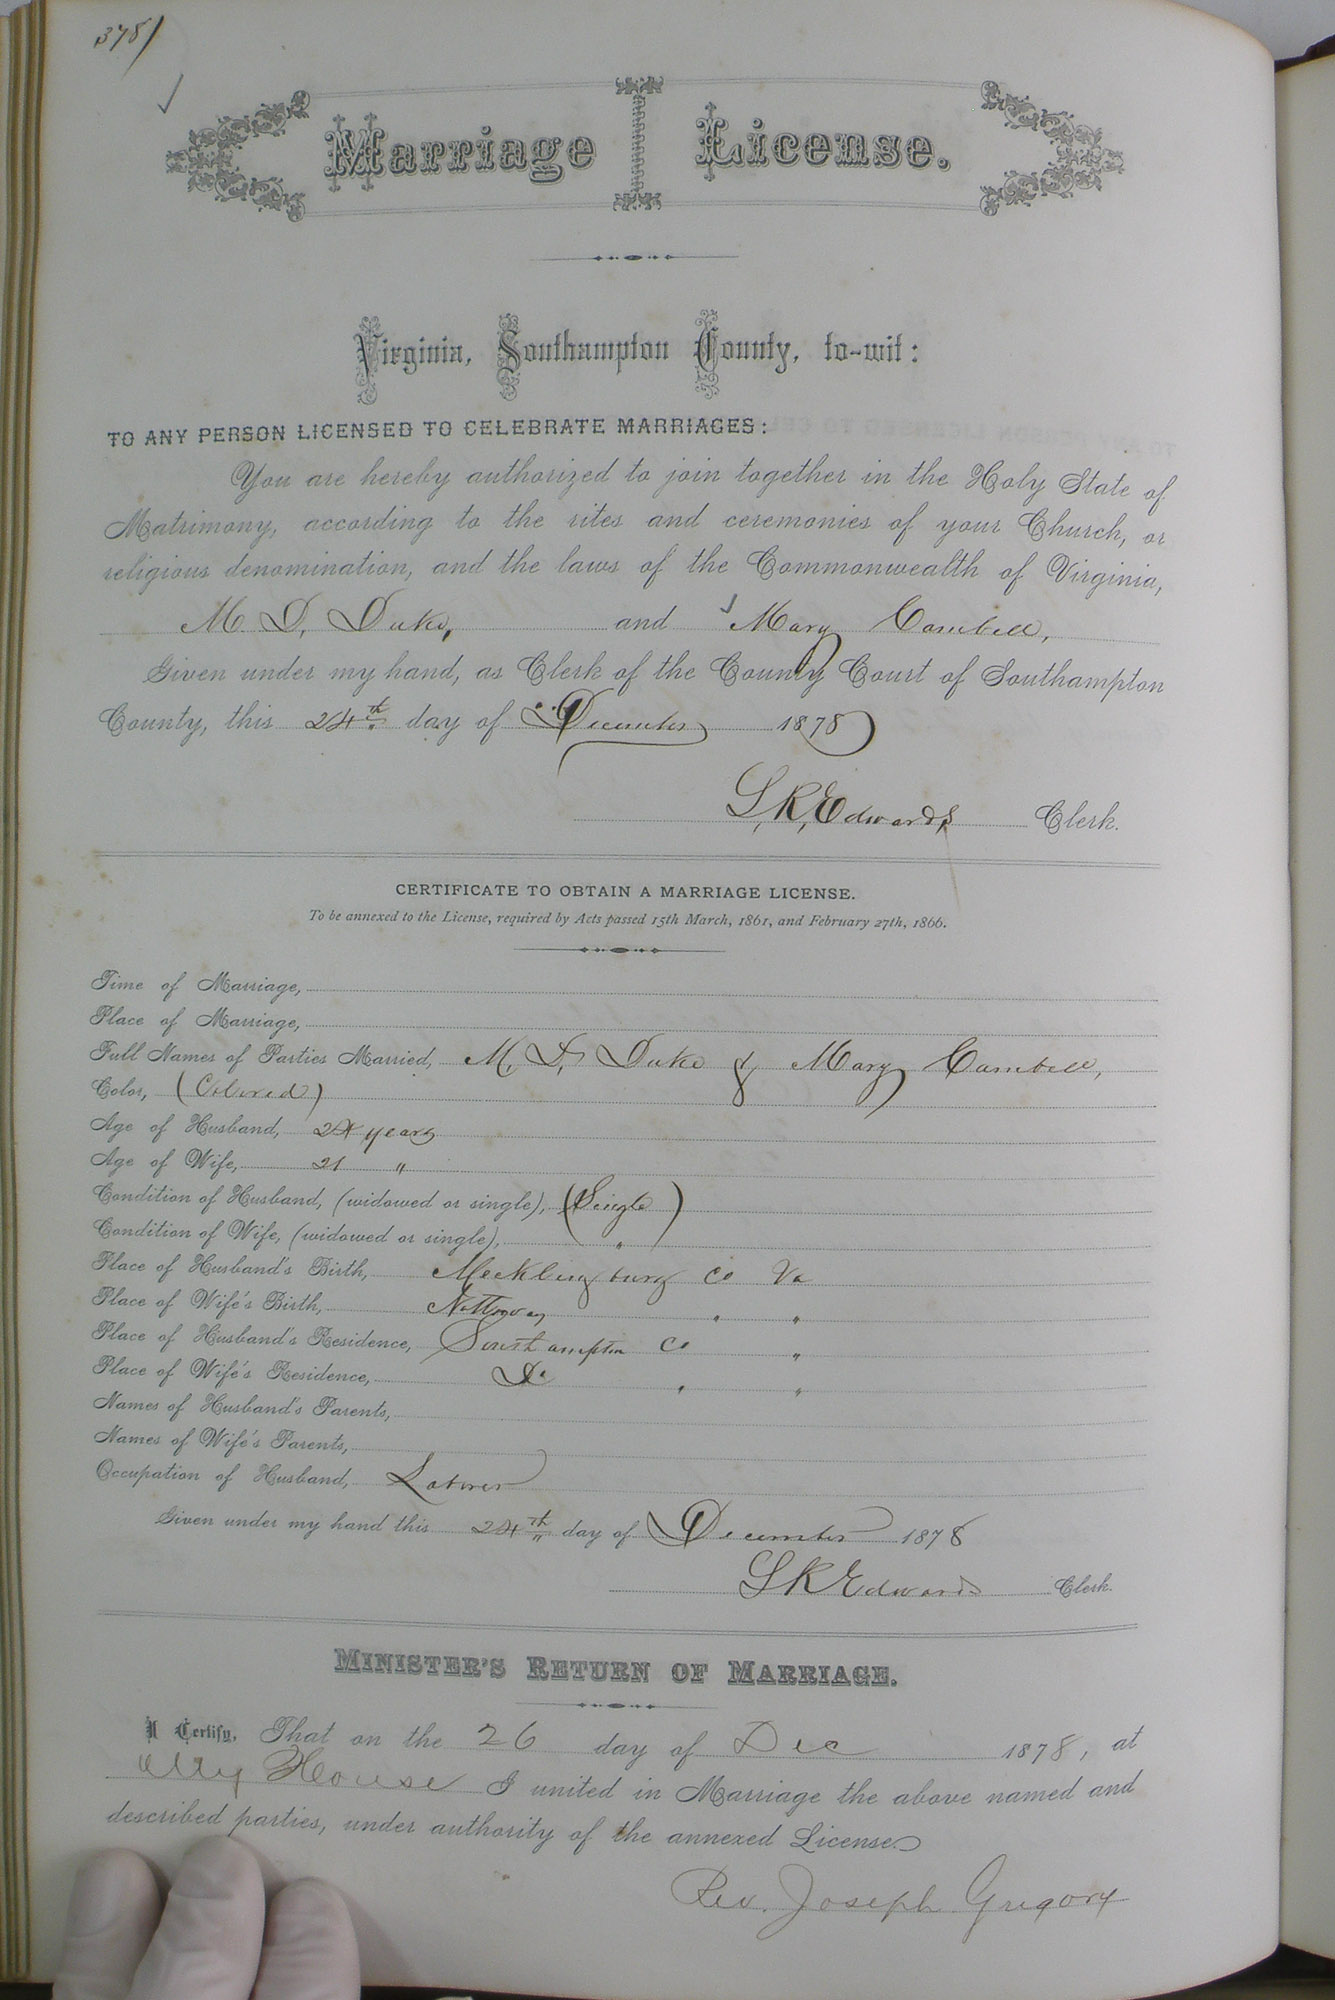 378
Marriage License.
Virginia, Southampton County, to-wit:
TO ANY PERSON LICENSED TO CELEBRATE MARRIAGES:
You are hereby authorized to join together in the Holy State of
Matrimony, according to the rites and ceremonies of your Church, or
religious denomination, and the laws of the Commonwealth of Virginia,
M. D. Duke, and Mary Cambell,
Given under my hand, as Clerk of the County Court of Southampton
County, this 24th day of December 1878
L, R, Edwards, Clerk.
CERTIFICATE TO OBTAIN A MARRIAGE LICENSE.
To be annexed to the License, required by Acts passed 15th March, 1861, and February 27th, 1866.
Time of Marriage,
Place of Marriage,
Full Names of Parties Married, M. D. Duke & Mary Cambell,
Color, (Colored)
Age of Husband, 24 years
Age of Wife, 21 "
Condition of Husband, (widowed or single), (Single)
Condition of Wife, (widowed or single), "
Place of Husband's Birth, Mecklingburg Co Va
Place of Wife's Birth, Nottoway " "
Place of Husband's Residence, Southampton Co "
Place of Wife's Residence, Do " "
Names of Husband's Parents,
Names of Wife's Parents,
Occupation of Husband, Laborer
Given under my hand this 24th day of December 1878
L R Edwards Clerk.
MINISTER'S RETURN OF MARRIAGE.
I Certify, That on the 26 day of Dec 1878, at
My House I united in Marriage the above named and
described parties, under authority of the annexed License.
Rev. Joseph Gregory